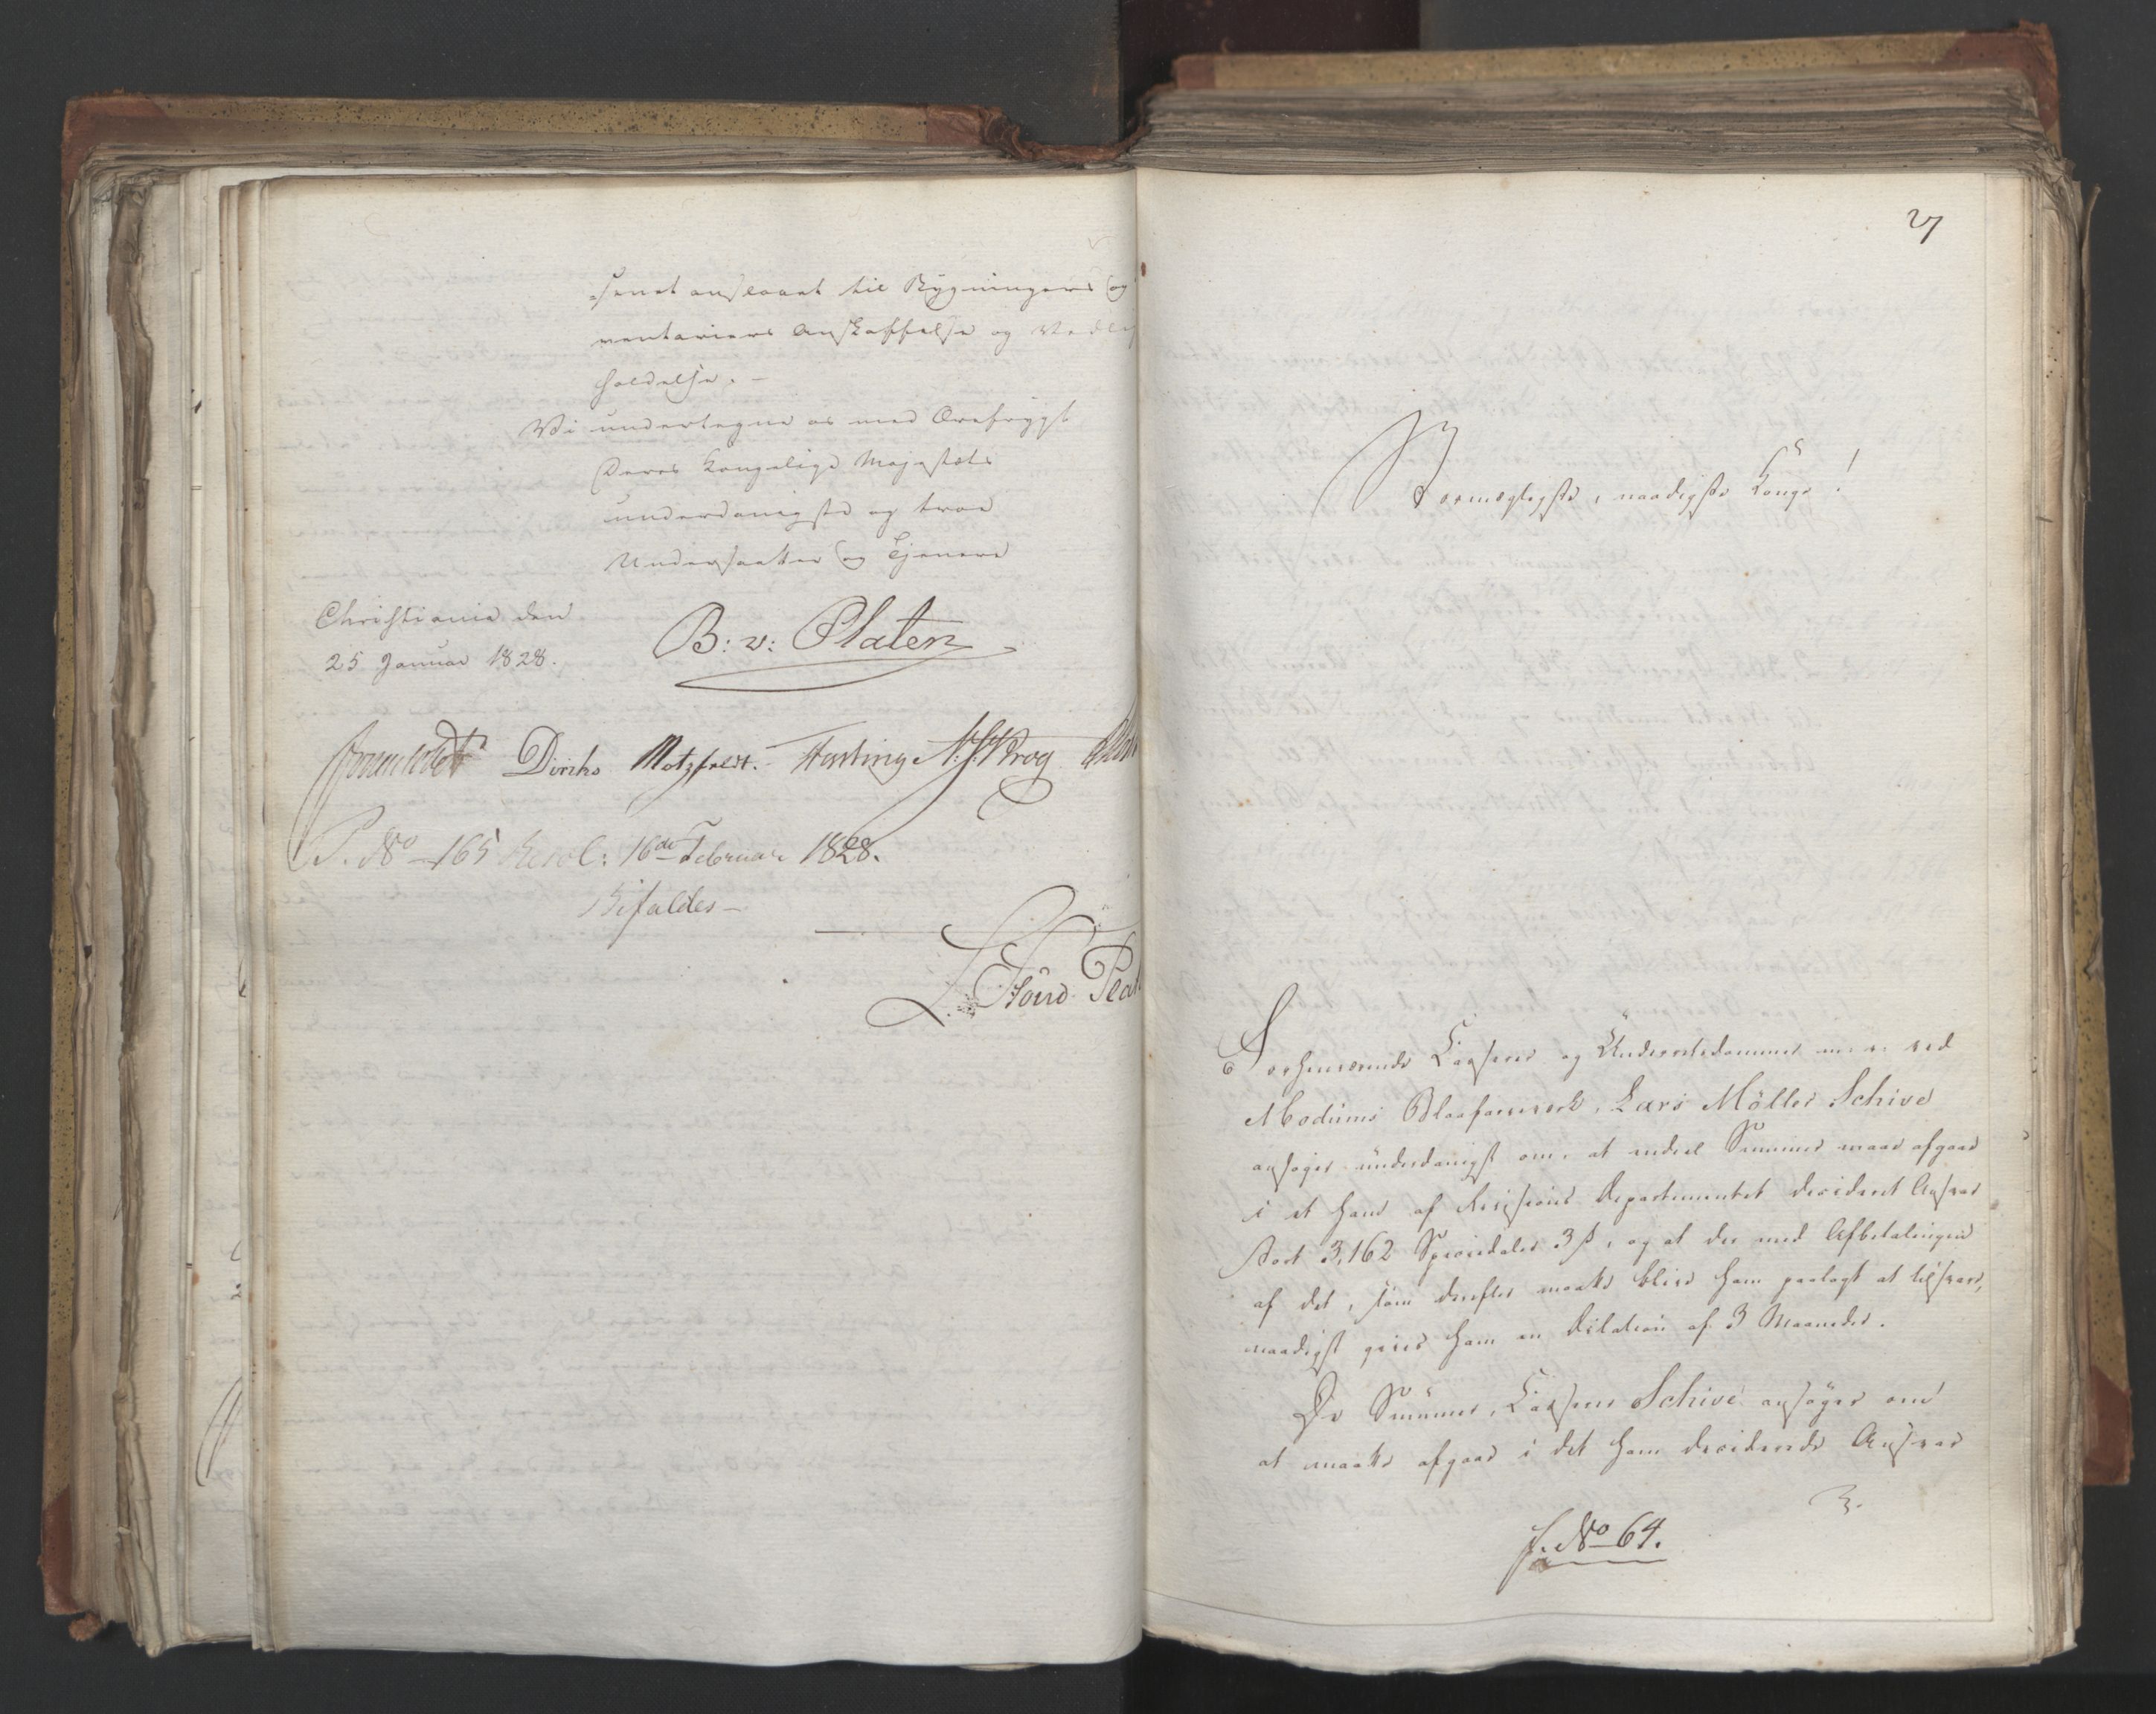 senet anslaaet til Bygningers og
ventariers Anskaffelse og Vedlige
holdelse. -
Vi undertegne os med Ærefrygt
Deres Kongelige Majestæts
underdanigste og troe
Undersaatter og Tjenere
Christiania den
25 Januar 1828.
B: v: Platen
Sommerhielm Diriks Motzfeldt. Fasting N. J. Krog
P. No 165 Resol: 16de Februar 1828.
Bifaldes -
27
Stormægtigste, naadigste Konge!
Forhenværende Kasserer og Underretsdommer m. v. ved
Modums Blaafarveværk, Lars Möller Schive
ansøger underdanigst om, at endeel Summer maae afgaae
i et ham af Revisions Departementet decideret Ansvar
stort 3,162 Speciedaler 3 s, og at der med Afbetalingen
af det, som derefter maatte blive ham paalagt at tilsvare,
naadigst gives ham en Dilation af 3 Maaneder.
De Summer, Kasserer Schive ansøger om
at maatte afgaae i det ham deciderede Ansvar
No 64.